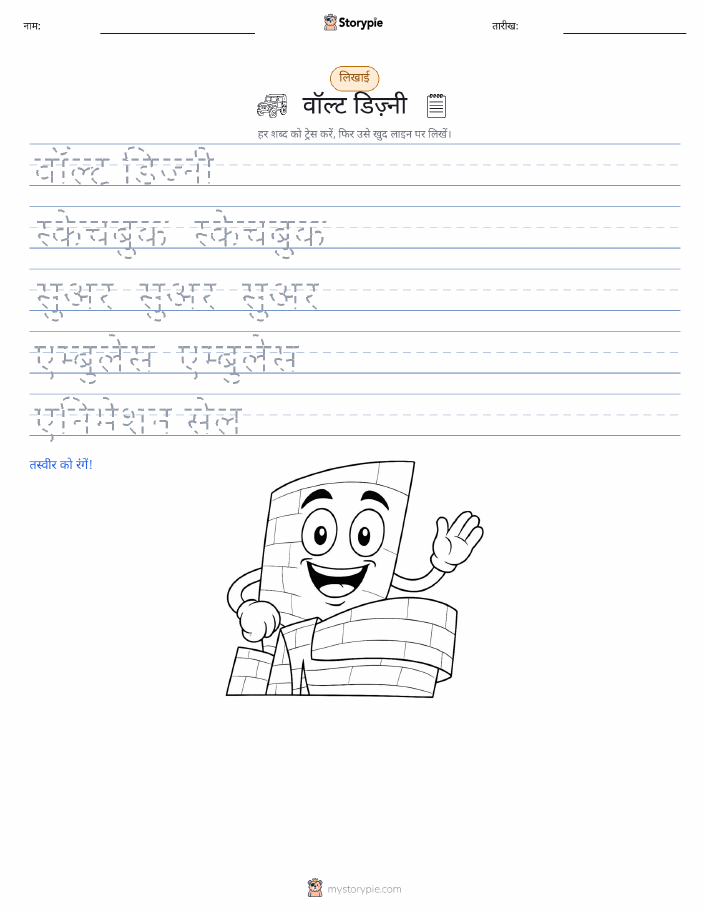 नाम:
Storypie
तारीख:
लिखाई
वॉल्ट डिज़्नी
हर शब्द को ट्रेस करें, फिर उसे खुद लाइन पर लिखें।
वॉल्ट डिज्नी
स्केचबुक स्केचबुक
सुअर सुअर सुअर
एम्बुलेंस एम्बुलेंस
एनिमेशन सेल
तस्वीर को रंगें!
mystorypie.com